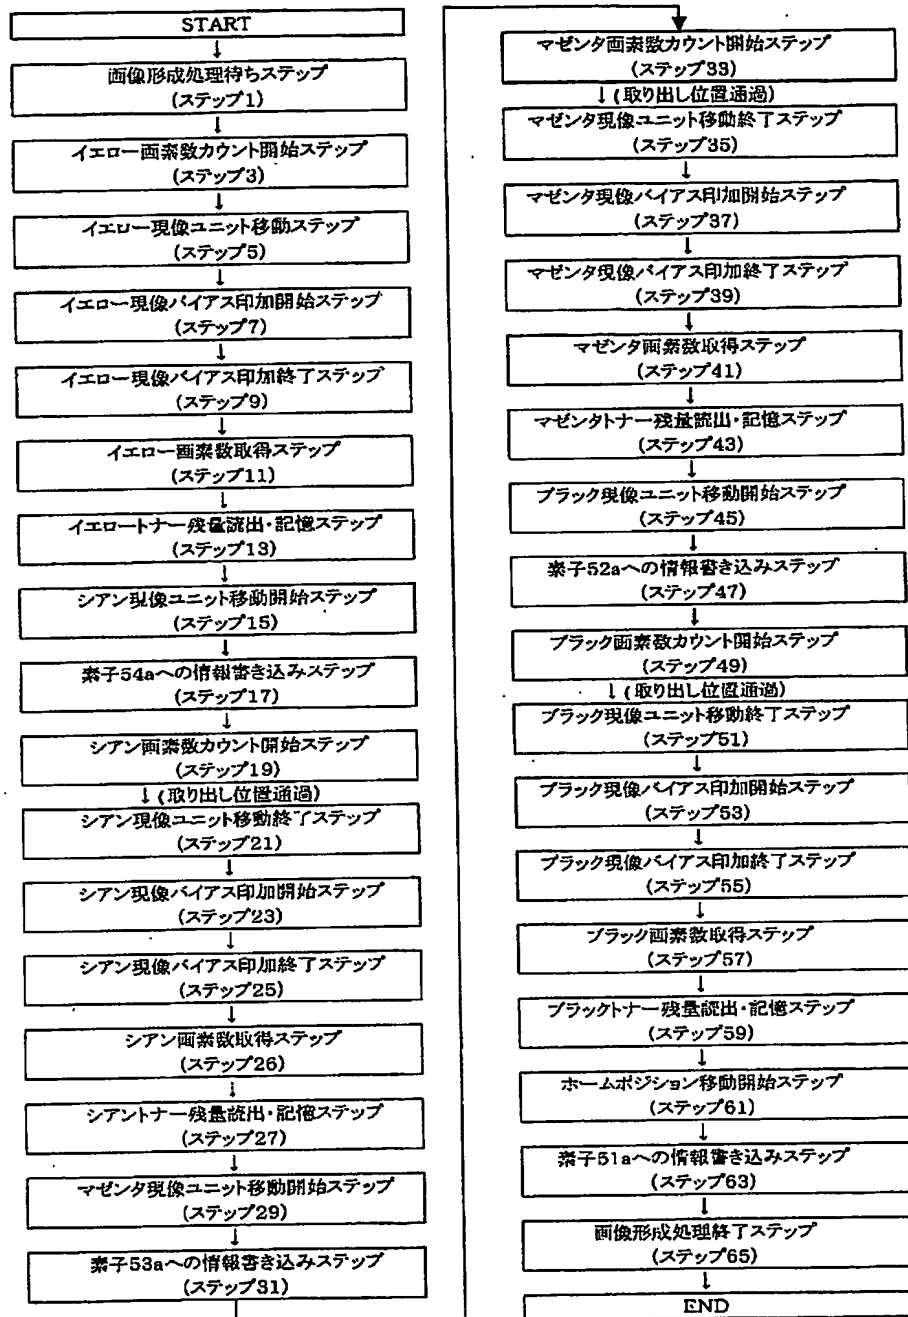 START
↓
画像形成処理待ちステップ
(ステップ1)
↓
イエロー画素数カウント開始ステップ
(ステップ3)
↓
イエロー現像ユニット移動ステップ
(ステップ5)
↓
イエロー現像バイアス印加開始ステップ
(ステップ7)
↓
イエロー現像バイアス印加終了ステップ
(ステップ9)
↓
イエロー画素数取得ステップ
(ステップ11)
↓
イエロートナー残量読出・記憶ステップ
(ステップ13)
↓
シアン現像ユニット移動開始ステップ
(ステップ15)
↓
素子54aへの情報書き込みステップ
(ステップ17)
↓
シアン画素数カウント開始ステップ
(ステップ19)
↓(取り出し位置通過)
シアン現像ユニット移動終了ステップ
(ステップ21)
↓
シアン現像バイアス印加開始ステップ
(ステップ23)
↓
シアン現像バイアス印加終了ステップ
(ステップ25)
↓
シアン画素数取得ステップ
(ステップ26)
↓
シアントナー残量読出・記憶ステップ
(ステップ27)
↓
マゼンタ現像ユニット移動開始ステップ
(ステップ29)
↓
素子53aへの情報書き込みステップ
(ステップ31)
マゼンタ画素数カウント開始ステップ
(ステップ33)
↓(取り出し位置通過)
マゼンタ現像ユニット移動終了ステップ
(ステップ35)
↓
マゼンタ現像バイアス印加開始ステップ
(ステップ37)
↓
マゼンタ現像バイアス印加終了ステップ
(ステップ39)
↓
マゼンタ画素数取得ステップ
(ステップ41)
↓
マゼンタトナー残量読出・記憶ステップ
(ステップ43)
↓
ブラック現像ユニット移動開始ステップ
(ステップ45)
↓
素子52aへの情報書き込みステップ
(ステップ47)
↓
ブラック画素数カウント開始ステップ
(ステップ49)
↓(取り出し位置通過)
ブラック現像ユニット移動終了ステップ
(ステップ51)
↓
ブラック現像バイアス印加開始ステップ
(ステップ53)
↓
ブラック現像バイアス印加終了ステップ
(ステップ55)
↓
ブラック画素数取得ステップ
(ステップ57)
↓
ブラックトナー残量読出・記憶ステップ
(ステップ59)
↓
ホームポジション移動開始ステップ
(ステップ61)
↓
素子51aへの情報書き込みステップ
(ステップ63)
↓
画像形成処理終了ステップ
(ステップ65)
↓
END